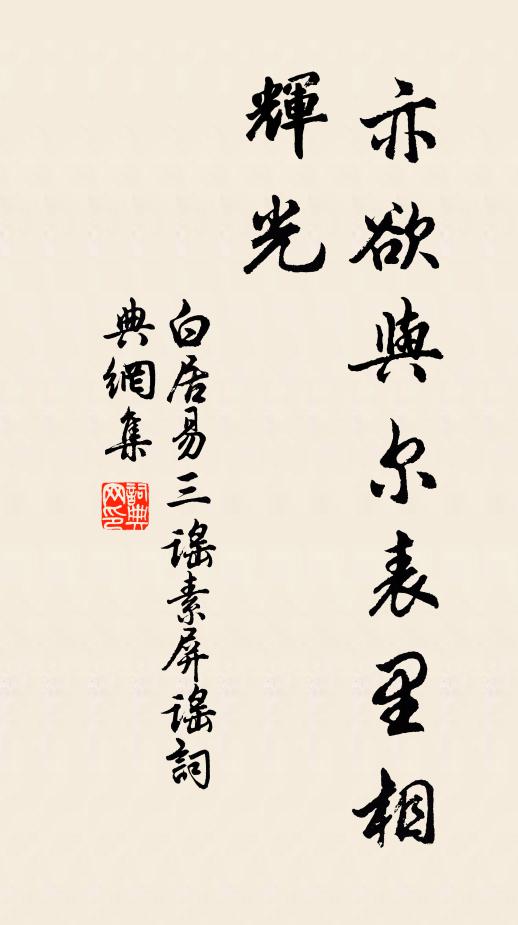 亦欲與尔表里相
輝光
白居易三謠素屏謠詞
典網集
詞典
网印